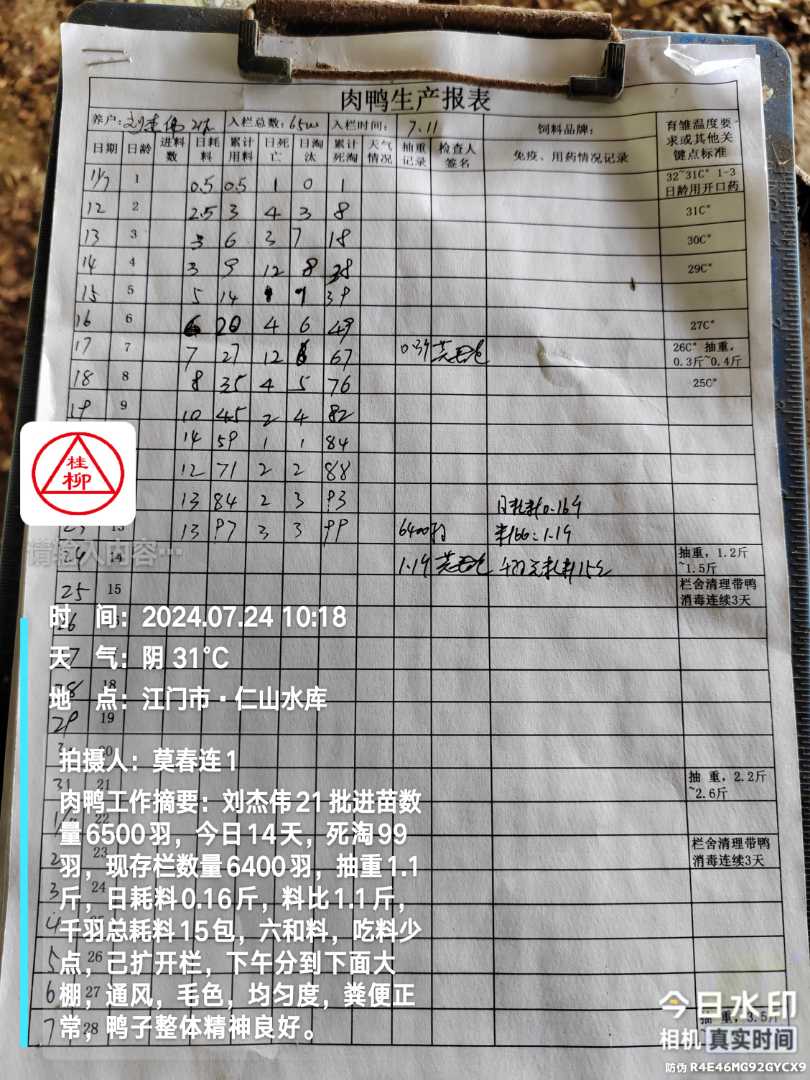 肉鸭生产报表
养户: 刘杰伟 21批 入栏总数: 6500 入栏时间: 7.11 饲料品牌: 育雏温度要求或其他关键点标准
日期 日龄 进料数 日耗料 累计用料 日死亡 日淘汰 累计死淘 天气情况 抽重记录 检查人签名 免疫、用药情况记录
11/7 1 0.5 0.5 1 0 1 32~31C° 1-3日龄用开口药
12 2 2.5 3 4 3 8 31C°
13 3 3 6 3 7 18 30C°
14 4 3 9 12 8 38 29C°
15 5 5 14 1 39
16 6 6 20 4 6 49 27C°
17 7 7 27 12 6 67 0.39 26C° 抽重, 0.3斤~0.4斤
18 8 8 35 4 5 76 25C°
19 9 10 45 2 4 82
14 59 1 1 84
12 71 2 2 88
13 84 2 3 93 日耗料0.16斤
23 13 13 97 3 3 99 6400羽 料比: 1.1斤
24 14 1.1斤 千羽总耗料15包 抽重, 1.2斤~1.5斤
25 15 栏舍清理带鸭消毒连续3天
26
27
28 18
29 19
20
31 21 抽 重, 2.2斤~2.6斤
22
2 23 栏舍清理带鸭消毒连续3天
3 24
4
5 26
6 27
7 28 抽 重, 3.5斤
桂柳
请输入内容…
时 间: 2024.07.24 10:18
天 气: 阴 31℃
地 点: 江门市·仁山水库
拍摄人: 莫春连1
肉鸭工作摘要: 刘杰伟21批进苗数
量6500羽，今日14天，死淘99
羽，现存栏数量6400羽，抽重1.1
斤，日耗料0.16斤，料比1.1斤，
千羽总耗料15包，六和料，吃料少
点，已扩开栏，下午分到下面大
棚，通风，毛色，均匀度，粪便正
常，鸭子整体精神良好。
今日水印
相机 真实时间
防伪 R4E46MG92GYCX9